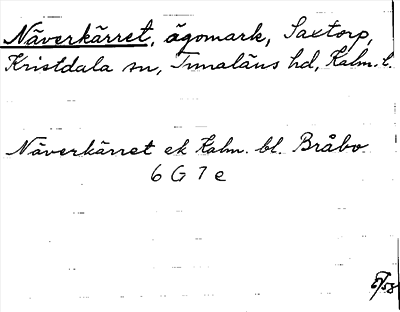 Näverkärret, ägomark, Saxtorp,
Kristdala sn, Tunaläns hd, Kalm. l.
Näverkärret ek Kalm. bl. Bråbo.
6 G 7 e